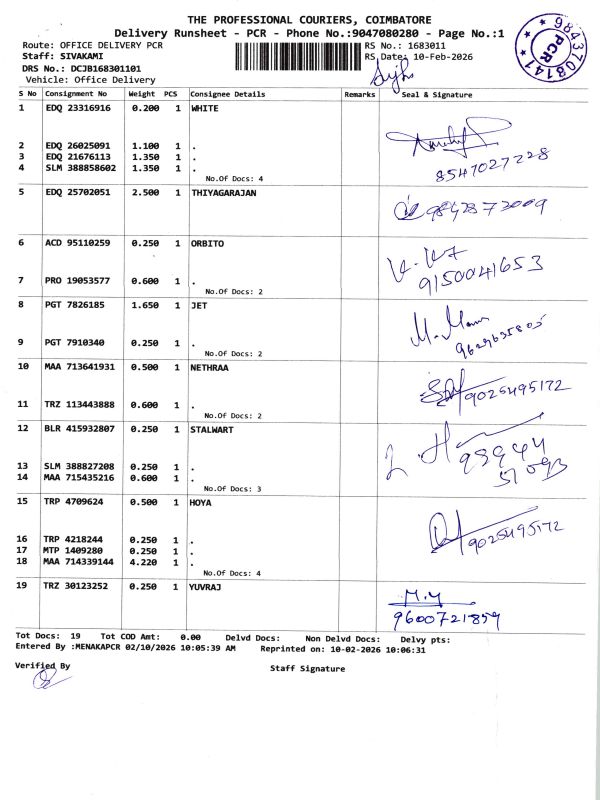 THE PROFESSIONAL COURIERS, COIMBATORE
Delivery Runsheet - PCR - Phone No.:9047080280 - Page No.:1
Route: OFFICE DELIVERY PCR
RS No.: 1683011
Staff: SIVAKAMI
RS Date: 10-Feb-2026
DRS No.: DCJB168301101
Vehicle: Office Delivery
9843708141
PCR
S No Consignment No Weight PCS Consignee Details Remarks Seal & Signature
1 EDQ 23316916 0.200 1 WHITE
2 EDQ 26025091 1.100 1 .
3 EDQ 21676113 1.350 1 .
4 SLM 388858602 1.350 1 .
No.Of Docs: 4
8547027228
5 EDQ 25702051 2.500 1 THIYAGARAJAN
9842873009
6 ACD 95110259 0.250 1 ORBITO
7 PRO 19053577 0.600 1 .
No.Of Docs: 2
9150041653
8 PGT 7826185 1.650 1 JET
9 PGT 7910340 0.250 1 .
No.Of Docs: 2
10 MAA 713641931 0.500 1 NETHRAA
11 TRZ 113443888 0.600 1 .
No.Of Docs: 2
9025495172
12 BLR 415932807 0.250 1 STALWART
13 SLM 388827208 0.250 1 .
14 MAA 715435216 0.600 1 .
No.Of Docs: 3
15 TRP 4709624 0.500 1 HOYA
16 TRP 4218244 0.250 1 .
17 MTP 1409280 0.250 1 .
18 MAA 714339144 4.220 1 .
No.Of Docs: 4
9025495172
19 TRZ 30123252 0.250 1 YUVRAJ
M.Y
9600721859
Tot Docs: 19 Tot COD Amt: 0.00 Delvd Docs: Non Delvd Docs: Delvy pts:
Entered By :MENAKAPCR 02/10/2026 10:05:39 AM Reprinted on: 10-02-2026 10:06:31
Verified By
Staff Signature